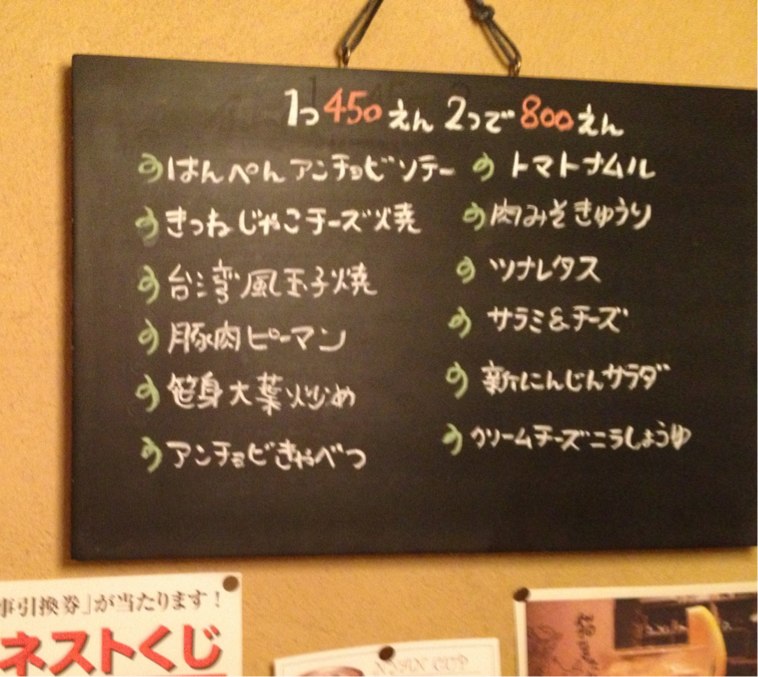 1つ450えん 2つで800えん
はんぺんアンチョビソテー
きつねじゃこチーズ焼
台湾風玉子焼
豚肉ピーマン
笹身大葉炒め
アンチョビきゃべつ
トマトナムル
肉みそきゅうり
ツナレタス
サラミ&チーズ
新にんじんサラダ
クリームチーズニラしょうゆ
事引換券」が当たります!
ネストくじ